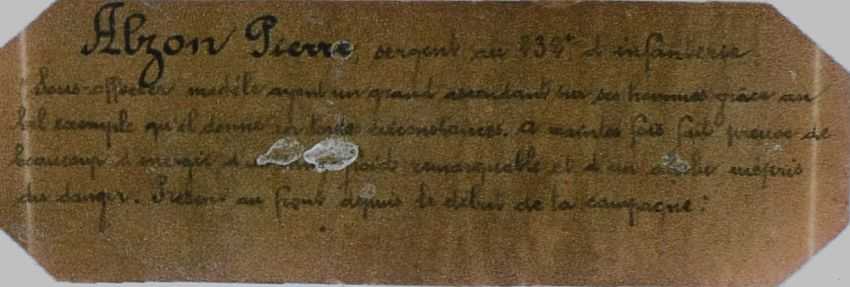 Abzon Pierre, sergent au 838e d'infanterie.
"Sous-officier modèle ayant un grand ascendant sur ses hommes grâce au
bel exemple qu'il donne en toutes circonstances. A maintes fois fait preuve de
beaucoup d'énergie d'un remarquable et d'un mépris
du danger. Présent au front depuis le début de la campagne."